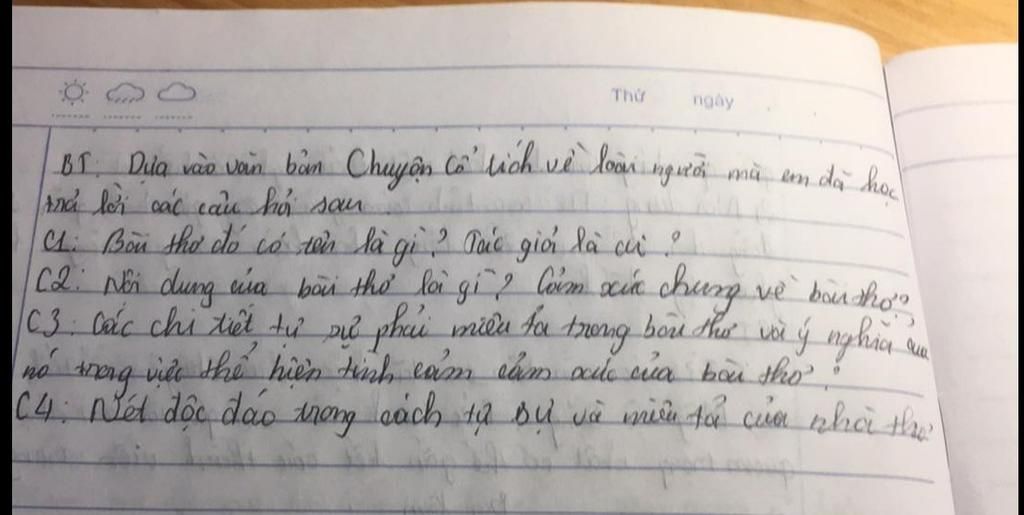 Thứ ngày
BT: Dựa vào văn bản Chuyện cổ tích về loài người mà em đã học
trả lời các câu hỏi sau
C1: Bài thơ đó có tên là gì? Tác giả là ai?
C2: Nội dung của bài thơ là gì? Cảm xúc chung về bài thơ?
C3: Các chi tiết tự sự phải miêu tả trong bài thơ và ý nghĩa của
nó trong việc thể hiện tình cảm cảm xúc của bài thơ?
C4: Nét độc đáo trong cách tự sự và miêu tả của nhà thơ